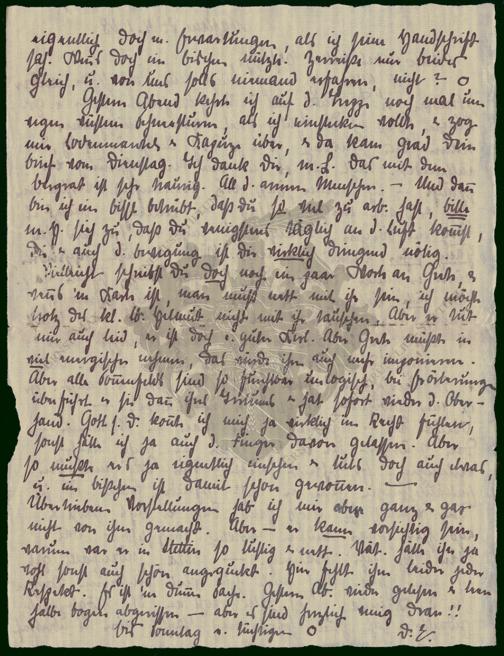 eigentlich doch m. Erwartungen, als ich seine Handschrift
sah. Muß doch ein bißchen nützts. Zerreiße nur beides
gleich, u. von uns solls niemand erfahren, nicht? O
Gestern Abend kehrte ich auf d. Treppe noch mal um
wegen wüsten Schneesturm, als ich einstecken wollte, & zog
mir Lodenmantel & Kapuze über, & da kam grad Dein
Brief vom Dienstag. Ich dank Dir, m. L. Das mit dem
Bergrat ist sehr traurig. All d. armen Menschen. — Und dann
bin ich ein bissl betrübt, daß du so viel zu arb. hast, bitte
m. H. sieh zu, daß du wenigstens täglich an d. Luft kommst,
die & auch d. Bewegung ist dir wirklich dringend nötig.
Vielleicht schreibst du doch noch ein paar Worte an Gute, &
wenns 'ne Karte ist, man muß nett mit ihr sein, ich möchte
trotz des kl. lb. Helmut nicht mit ihr tauschen. Aber er tut
mir auch leid, er ist doch e. guter Kerl. Aber Gute müßte ihn
viel energischer nehmen, das würde ihm auch mehr imponieren.
Aber alle sind so furchtbar unlogisch, bei Erörterungen
überführt er sie dann ihres Irrtums & hat sofort wieder d. Ober-
hand. Gott s. D. konnte ich mich ja wirklich im Recht fühlen,
sonst hätte ich ja auch d. Finger davon gelassen. Aber
so mußte er's ja eigentlich einsehen & tuts doch auch etwas,
u. ein bißchen ist damit schon gewonnen. —
Übertriebene Vorstellungen hab ich mir aber ganz & gar
nicht von ihm gemacht. Aber — er kann vorsichtig sein,
warum war er in Stettin so lustig & nett. Vat. hätte ihn ja
wohl sonst auch schön angeguckt. Hier fehlt ihm leider jeder
Respekt. Es ist 'ne dumme Sache. Gestern Ab. wieder gelesen & einen
halben Bogen abgerissen — aber es sind herzlich wenig dran!!
Bis Sonntag u. tüchtigen O D. E.